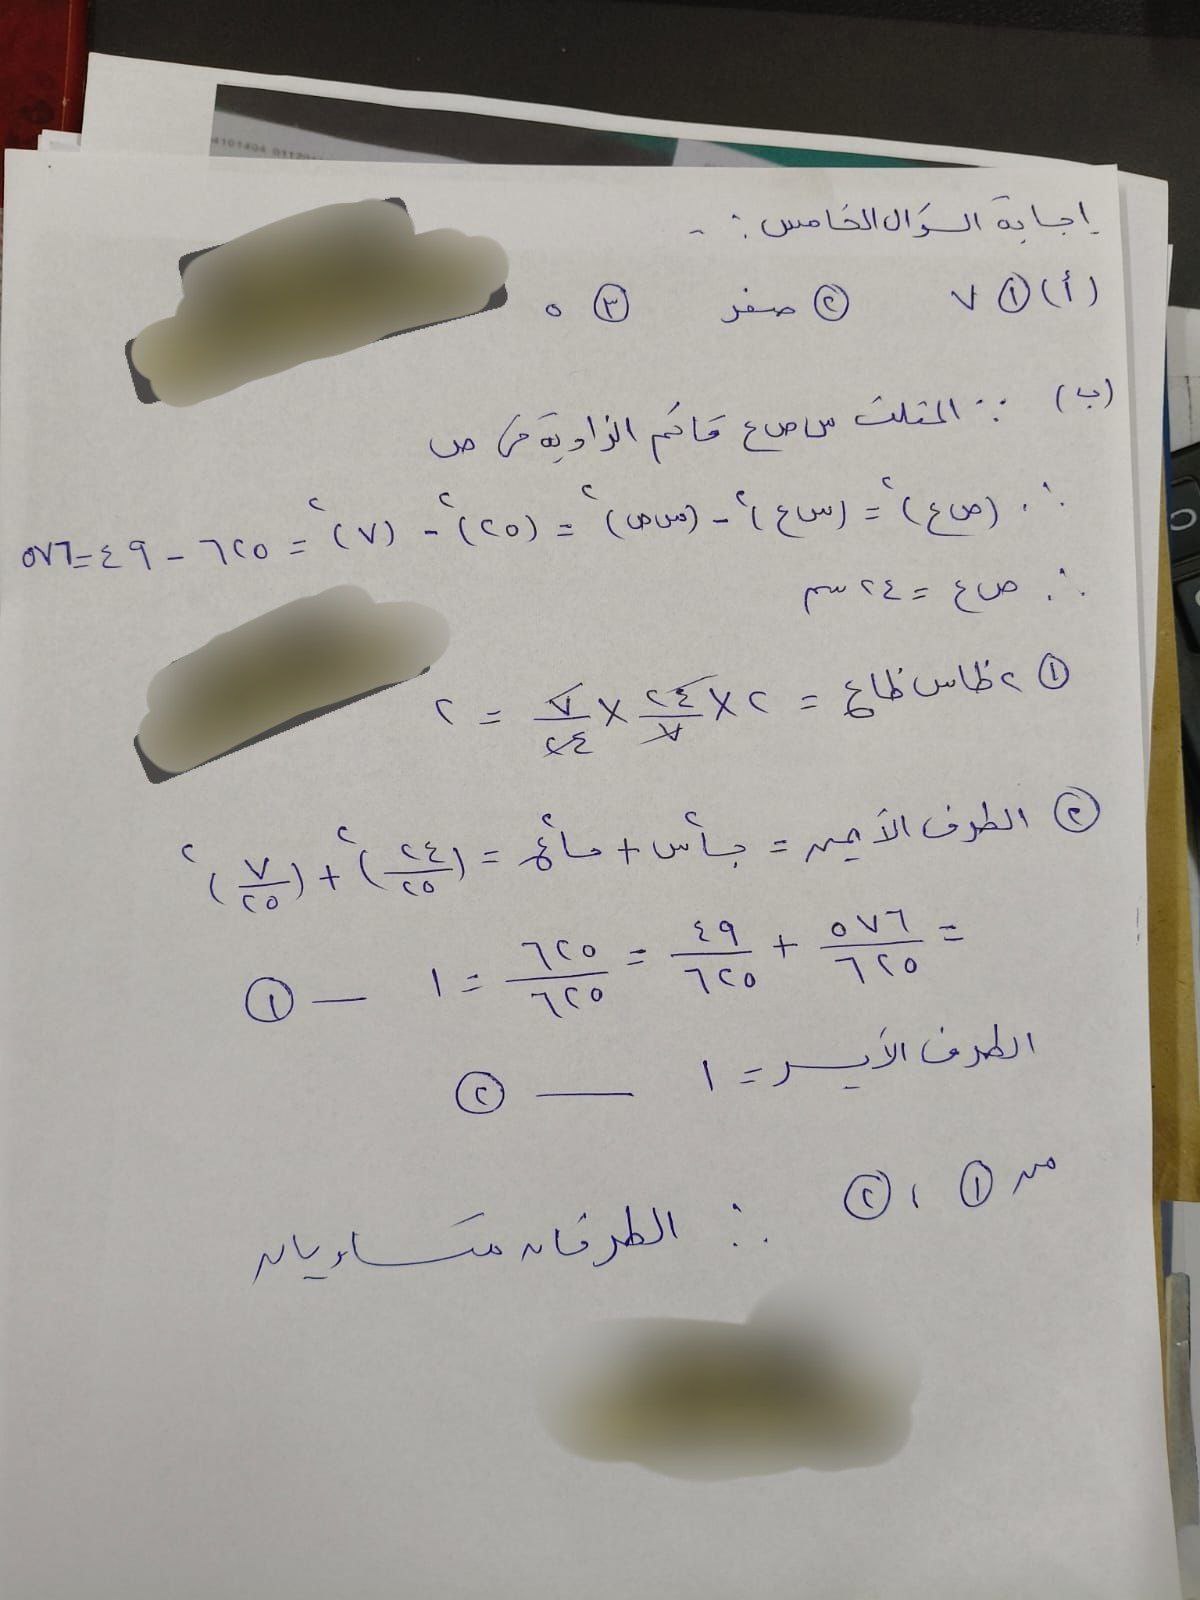 4101404 01120
إجابة السؤال الخامس :-
(أ) ① ٧ ② صفر ③ ٥
(ب) ∵ المثلث س ص ع قائم الزاوية فى ص
∴ (ص ع)٢ = (س ع)٢ - (س ص)٢ = (٢٥)٢ - (٧)٢ = ٦٢٥ - ٤٩ = ٥٧٦
∴ ص ع = ٢٤ سم
① ٢ ظاس ظاع = ٢ × ٢٤/٧ × ٧/٢٤ = ٢
② الطرف الأيمن = جا٢س + جتا٢ع = (٢٤/٢٥)٢ + (٧/٢٥)٢
= ٥٧٦/٦٢٥ + ٤٩/٦٢٥ = ٦٢٥/٦٢٥ = ١ — ①
الطرف الأيسر = ١ — ②
من ① ، ② ∴ الطرفان متساويان